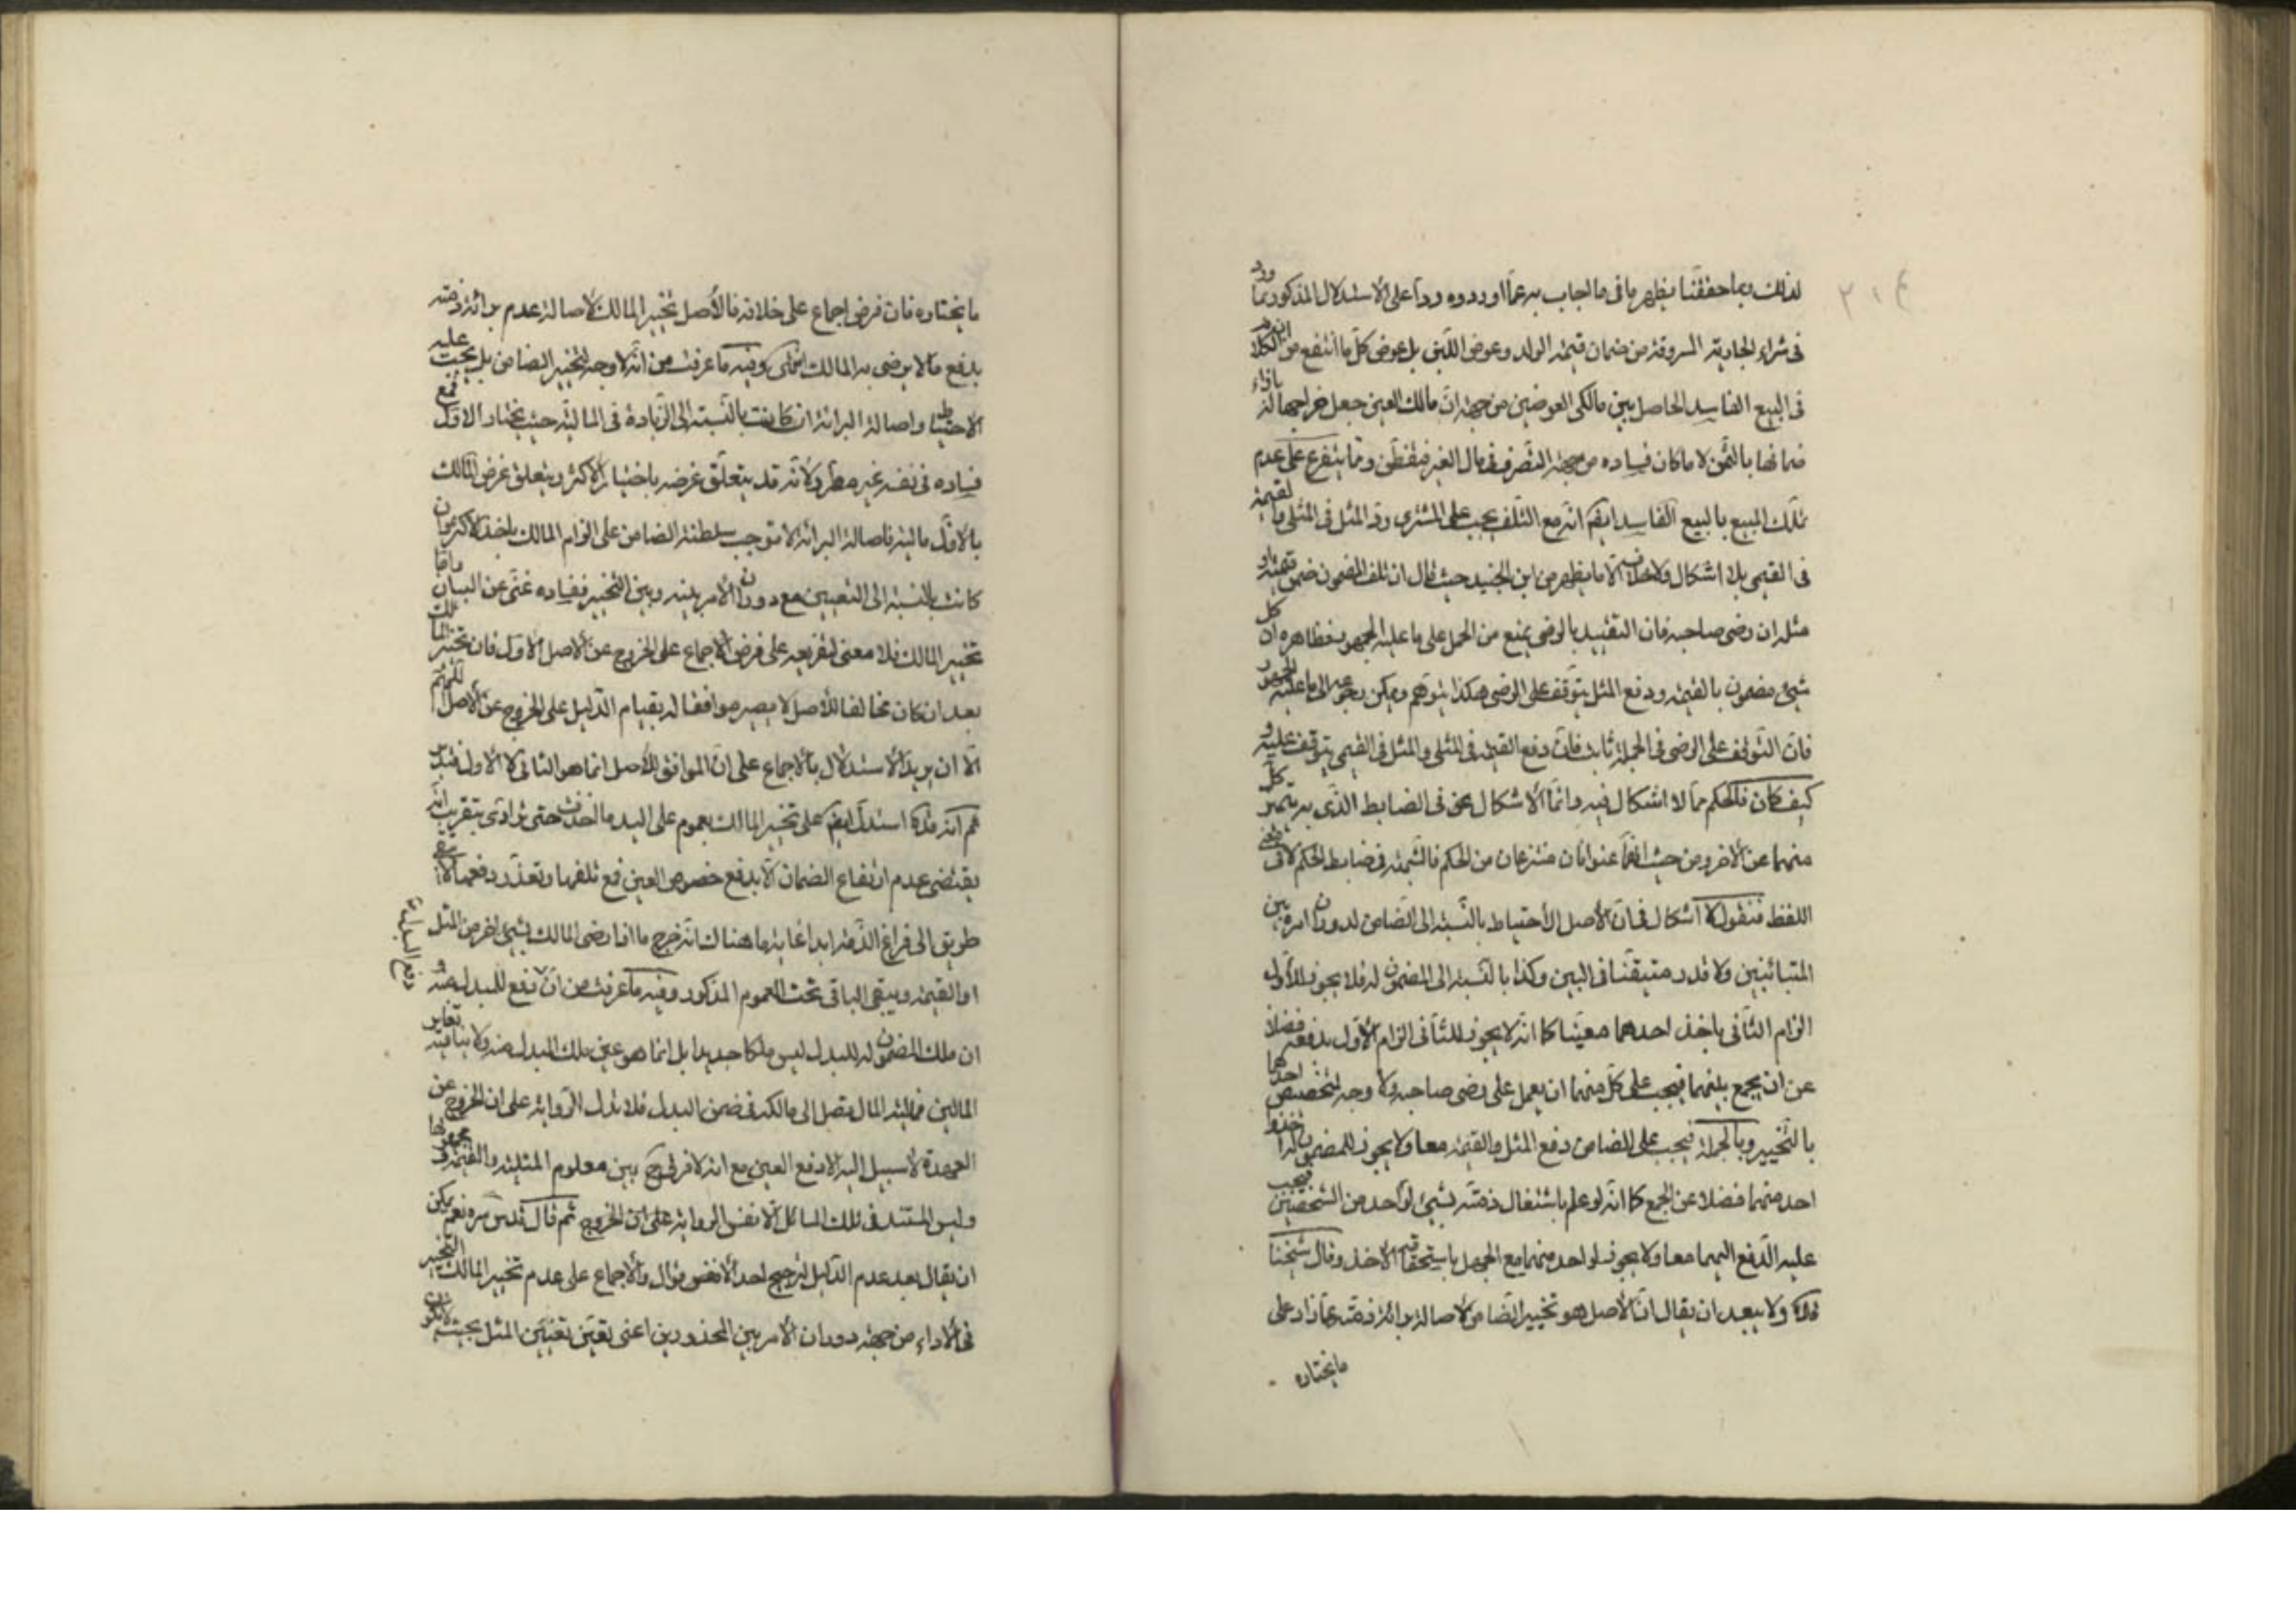 ٣١٤
لذلك وبما حققنا يظهر ما فى ما اجاب به عما اوردوه ردا على الاستدلال المذكور بما ورد
فى شراء الجارية المسروقة من ضمان قيمة الولد وعوض اللبن بل عوض كل ما انتفع من الكلا
فى البيع الفاسد الحاصل بين مالكى العوضين من جهة ان مالك العين جعل خراجها له بازاء
ضمانها بالثمن لا ما كان فساده من جهة التصرف فى مال الغير فتفطن ومما يتفرع على عدم
تملك المبيع بالبيع الفاسد ايضم انه مع التلف يجب على المشترى رد المثل فى المثلى والقيمة
فى القيمى بلا اشكال ولا خلاف الا ما يظهر من ابن الجنيد حيث قال ان تلف المضمون ضمن قيمته او
مثله ان رضى صاحبه فان التقييد بالرضى يمنع من الحمل على ما عليه الجمهور فظاهره ان كل
شىء مضمون بالقيمة ودفع المثل يتوقف على الرضى هكذا يتوهم ويمكن رجوعه الى ما عليه الجمهور
فان التوقف على الرضى فى الجملة ثابت فان دفع القيمة فى المثلى والمثل فى القيمى يتوقف عليه و
كيف كان فالحكم مما لا اشكال فيه وانما الاشكال يحق فى الضابط الذى به يتميز كل
منهما عن الاخر ومن حيث انهما عنوانان منتزعان من الحكم فالشبهة فى ضابط الحكم لا فى معنى
اللفظ فنقول لا اشكال فى ان الاصل الاحتياط بالنسبة الى الضامن لدوران امره بين
المتباينين ولا قدر متيقنا فى البين وكذا بالنسبة الى المضمون له فلا يجوز للاول
الزام الثانى باخذ احدهما معينا كما انه لا يجوز للثانى الزام الاول بدفعه فضلا
عن ان يجمع بينهما فيجب على كل منهما ان يعمل على رضى صاحبه ولا وجه لتخصيص احدهما
بالتخيير وبالجملة فيجب على الضامن دفع المثل والقيمة معا ولا يجوز للمضمون له اخذ
احد منهما فضلا عن الجمع كما انه لو علم باشتغال ذمته بشىء لواحد من الشخصين فيجب
عليه الدفع اليهما معا ولا يجوز لواحد منهما مع الجهل باستحقاقه الاخذ وقال شيخنا
قدك ولا يبعد ان يقال ان الاصل هو تخيير الضامن لاصالة برائة ذمته عما زاد على
ما يختاره
ما يختاره فان فرض اجماع على خلافه فالاصل تخيير المالك لاصالة عدم برائة ذمته
بدفع ما لا يرضى به المالك انتهى وفيه ما عرفت من انه لا وجه لتخيير الضامن بل يجب عليه
الاحتياط واصالة البرائة ان كانت بالنسبة الى الزيادة فى المالية حيث يختار الاول فمع
فساده فى نفسه غير مطرد لانه قد يتعلق غرضه باختيار الاكثر ويتعلق غرض المالك
بالاقل مالية فاصالة البرائة لا توجب سلطنة الضامن على الزام المالك باخذ الاكثر وان
كانت بالنسبة الى التعيين مع دوران الامر بينه وبين التخيير ففساده غنى عن البيان واما
تخيير المالك فلا معنى لتفريعه على فرض الاجماع على الخروج عن الاصل الاول فان تخيير المالك
بعد ان كان مخالفا للاصل لا يصير موافقا له بقيام الدليل على الخروج عن الاصل
الا ان يريد الاستدلال بالاجماع على ان الموافق للاصل انما هو الثانى لا الاول فتدبر
ثم انه قدك استدل ايضم على تخيير المالك بعموم على اليد ما اخذت حتى تؤدى بتقريب انه
يقتضى عدم ارتفاع الضمان الا بدفع خصوص العين فمع تلفها وتعذر دفعها لا يبقى
طريق الى فراغ الذمة ابدا غاية ما هناك انه خرج ما اذا رضى المالك بشىء اخر من المثل
او القيمة ويبقى الباقى تحت العموم المذكور وفيه ما عرفت من ان دفع البدل دفع للمبدل منه و
ان ملك المضمون له للبدل ليس ملكا جديدا بل انما هو عين ملك المبدل منه ولا ينافيه تغاير
المالين فمالية المال متصل الى مالكه فى ضمن البدل فلا تدل الرواية على ان الخروج عن
العهدة لا سبيل اليه الا دفع العين مع انه لا فرق ح بين معلوم المثلية والقيمة ومجهولها
وليس المستند فى تلك المسائل الا نفس الرواية على ان الخروج ثم قال قدس سره نعم يمكن
ان يقال بعد عدم الدليل لترجيح احد الاقوال والاجماع على عدم تخيير المالك التخيير
فى الاداء من جهة دوران الامر بين المحذورين اعنى تعين تعيين المثل بحيث لا يكون